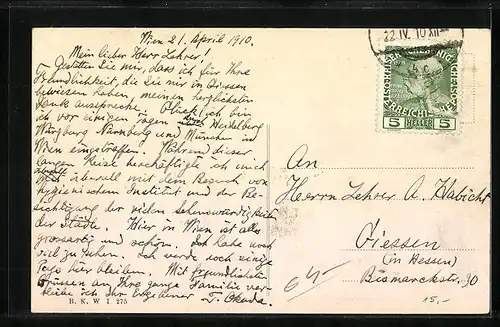 Wien 21. April 1910.
Mein lieber Herr Lehrer!
Gestatten Sie mir, dass ich für Ihre
Freundlichkeit, die Sie mir in Giessen
bewiesen haben, meinen herzlichsten
Dank ausspreche. Glücklich bin
ich vor einigen Tagen durch Heidelberg
Würzburg Nürnberg und München in
Wien eingetroffen. Während dieser
langen Reise beschäftigte ich mich
überall mit dem Besuch von
hygienischem Institut und der Be-
sichtigung der vielen Sehenswürdigkeiten
der Städte. Hier in Wien ist alles
grossartig und schön. Ich habe noch
viel zu sehen. Ich werde noch einige
Tage hier bleiben. Mit freundlichsten
Grüssen an Ihre ganze Familie ver-
bleibe ich Ihr Ergebener T. Okada.
B. K. W. I. 275
22 IV. 10 XII
5 HELLER 5
An
Herrn Lehrer A. Habicht
Giessen
(in Hessen)
Bismarckstr. 30
15,-